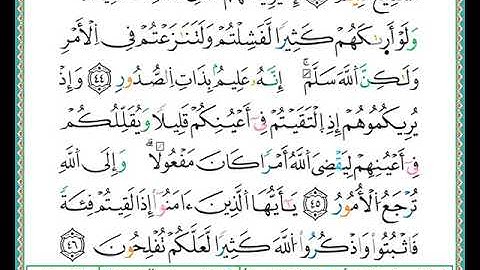 وَلَوْ أَرِىٰكَهُمْ كَثِيرًا لَّفَشِلْتُمْ وَلَتَنَٰزَعْتُمْ فِي ٱلْأَمْرِ
وَلَٰكِنَّ ٱللَّهَ سَلَّمَ إِنَّهُۥ عَلِيمُۢ بِذَاتِ ٱلصُّدُورِ ٤٤ وَإِذْ
يُرِيكُمُوهُمْ إِذِ ٱلْتَقَيْتُمْ فِيٓ أَعْيُنِكُمْ قَلِيلًا وَيُقَلِّلُكُمْ
فِيٓ أَعْيُنِهِمْ لِيَقْضِيَ ٱللَّهُ أَمْرًا كَانَ مَفْعُولًا وَإِلَى ٱللَّهِ
تُرْجَعُ ٱلْأُمُورُ ٤٥ يَٰٓأَيُّهَا ٱلَّذِينَ ءَامَنُوٓا۟ إِذَا لَقِيتُمْ فِئَةً
فَٱثْبُتُوا۟ وَٱذْكُرُوا۟ ٱللَّهَ كَثِيرًا لَّعَلَّكُمْ تُفْلِحُونَ ٤٦